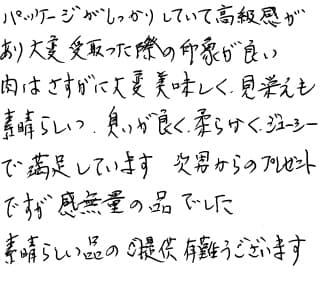 パッケージがしっかりしていて高級感が
あり大変受取った際の印象が良い
肉はさすがに大変美味しく、見栄えも
素晴らしい、臭いが良く、柔らかく、ジューシー
で満足しています 次男からのプレゼント
ですが感無量の品でした
素晴らしい品のご提供有難うございます